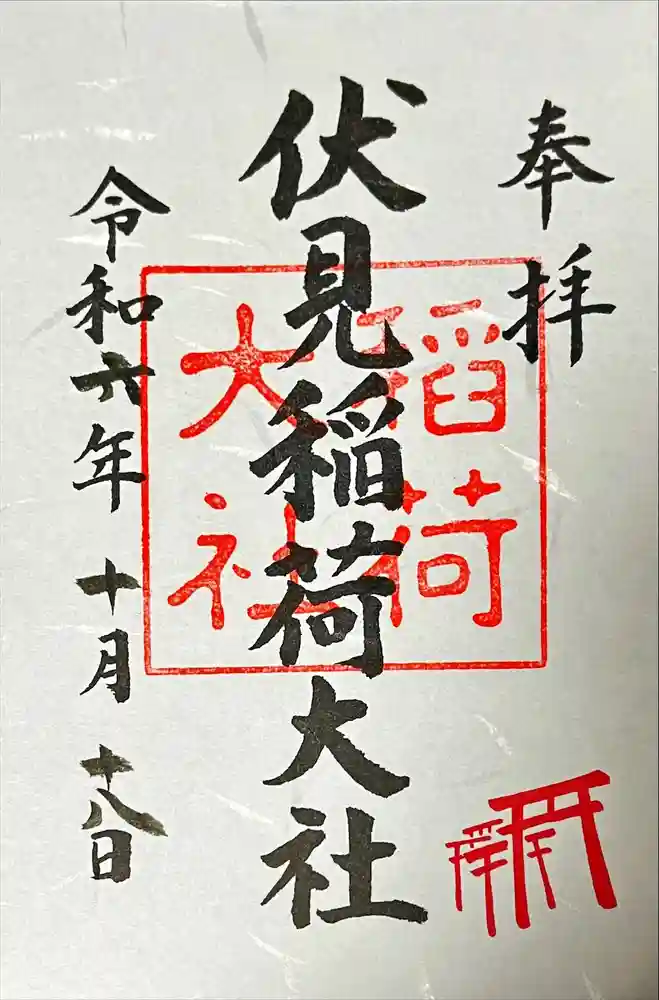 奉拝
伏見稲荷大社
稲荷
大社
令和六年 十月 十八日